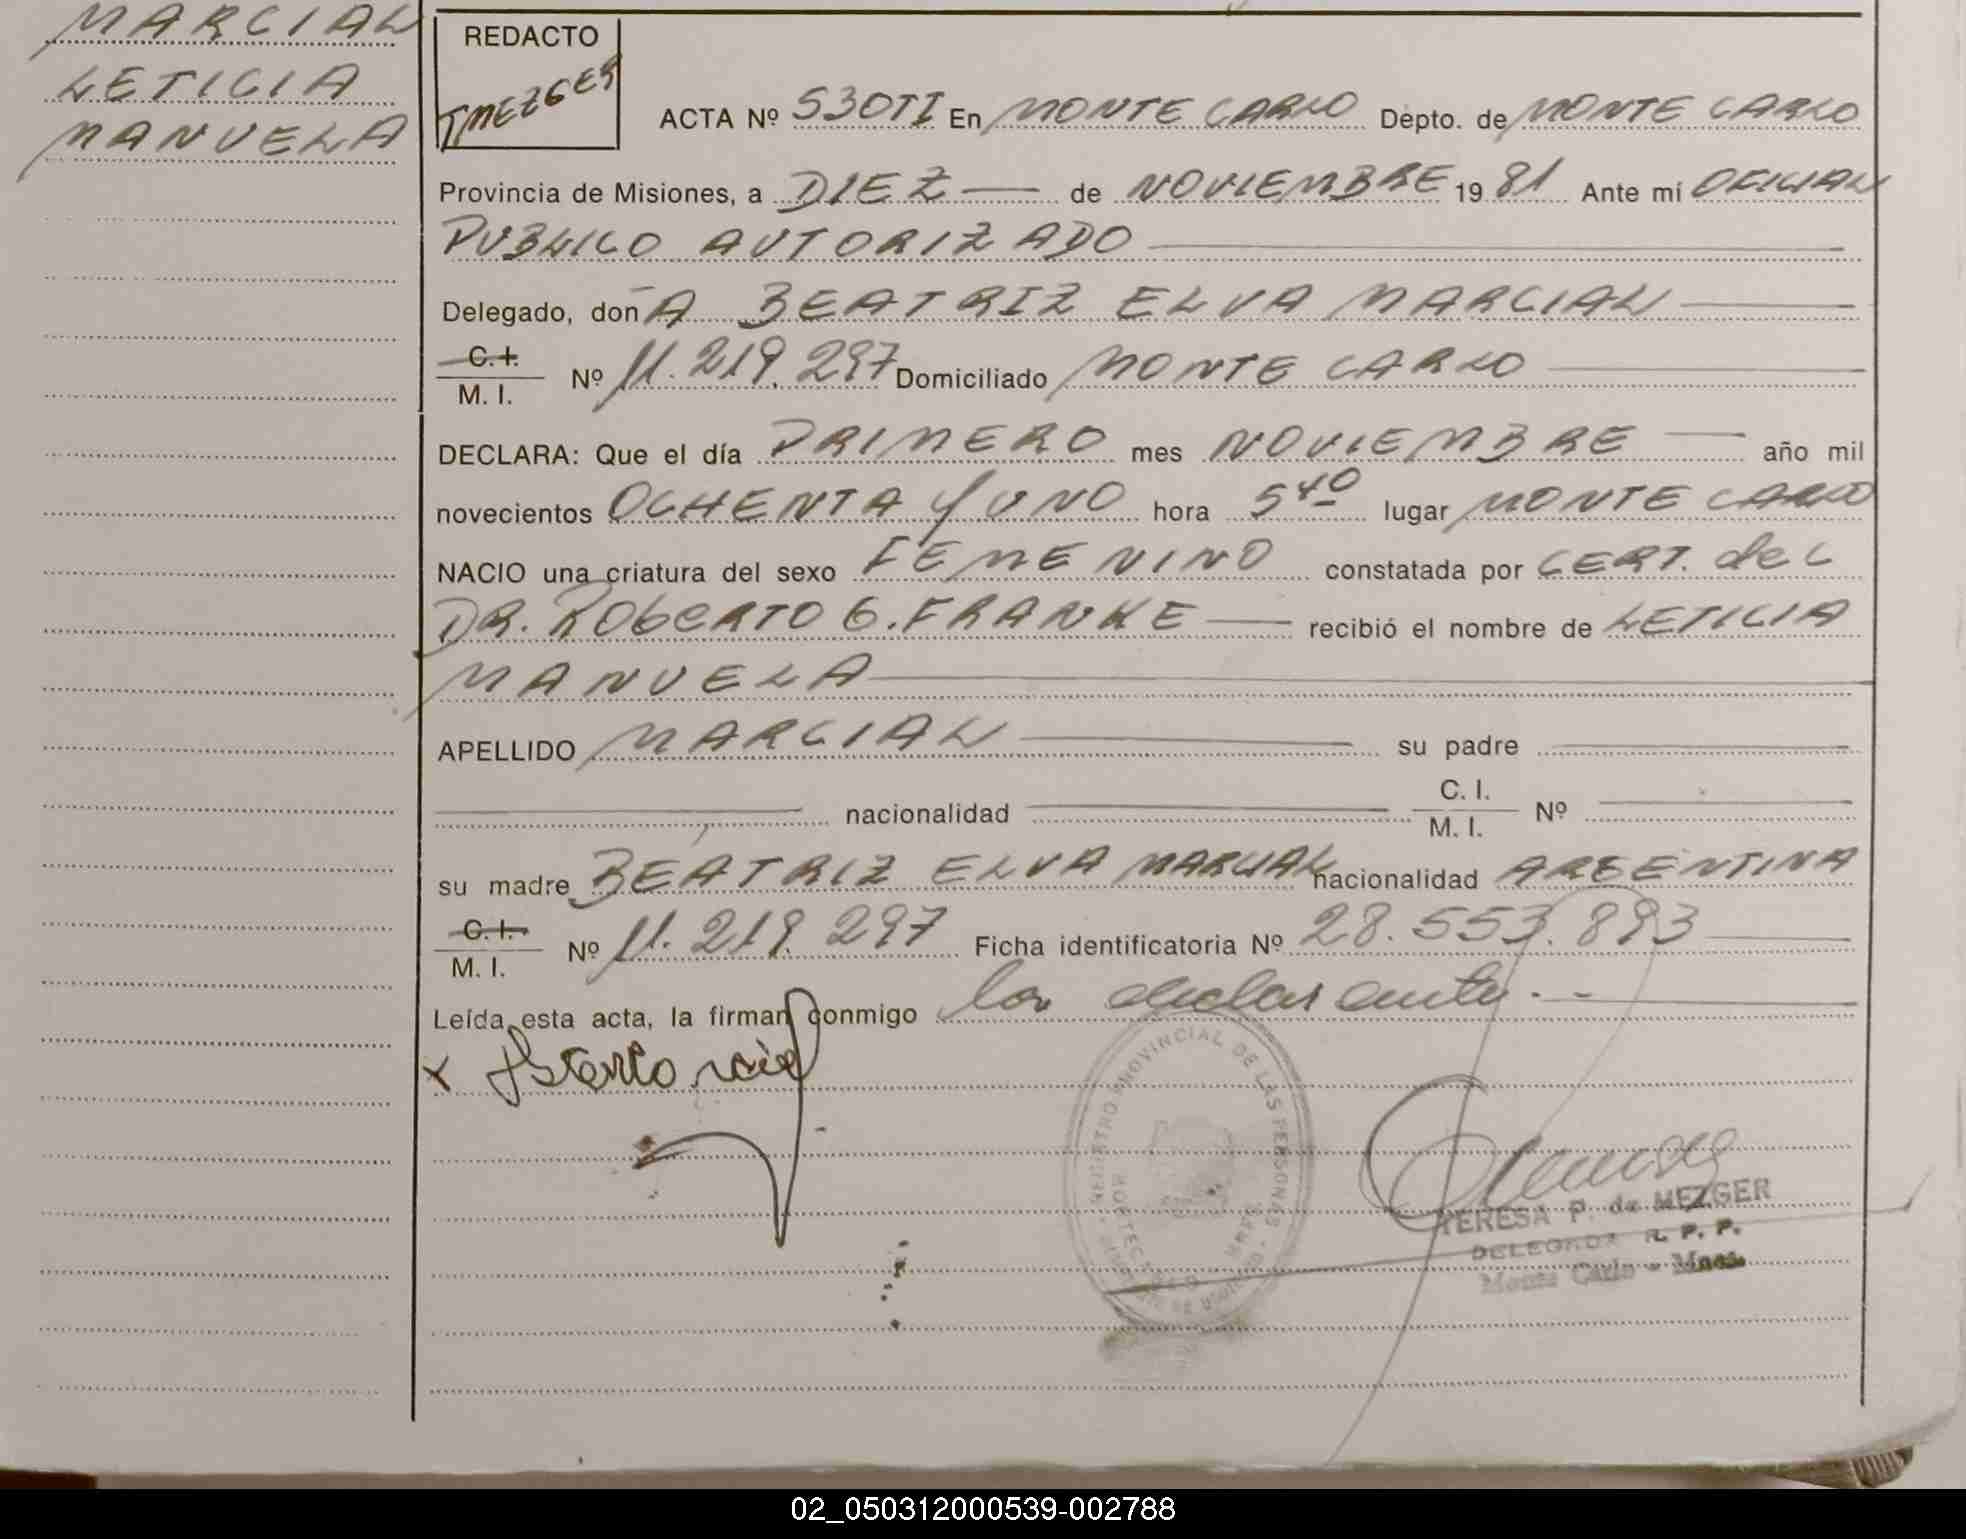 MARCIAL
LETICIA
MANUELA
REDACTO
TMEZGER
ACTA Nº 530TI En MONTE CARLO Depto. de MONTE CARLO
Provincia de Misiones, a DIEZ — de NOVIEMBRE 19 81 Ante mí OFICIAL
PUBLICO AUTORIZADO
Delegado, donA BEATRIZ ELVA MARCIAL
C.I.
M. I. Nº 11.219.297 Domiciliado MONTE CARLO
DECLARA: Que el día PRIMERO mes NOVIEMBRE — año mil
novecientos OCHENTA y UNO hora 5 40 lugar MONTE CARLO
NACIO una criatura del sexo FEMENINO constatada por CERT. del
DR. ROBERTO G. FRANKE — recibió el nombre de LETICIA
MANUELA
APELLIDO MARCIAL — su padre
nacionalidad C. I.
M. I. Nº
su madre BEATRIZ ELVA MARCIAL nacionalidad ARGENTINA
C. I.
M. I. Nº 11.219.297 Ficha identificatoria Nº 28.553.893
Leída esta acta, la firman conmigo la declarante.--
x
REGISTRO PROVINCIAL DE LAS PERSONAS
TERESA P. de MEZGER
DELEGADA R. P. P.
Monte Carlo - Mnes.
02_050312000539-002788